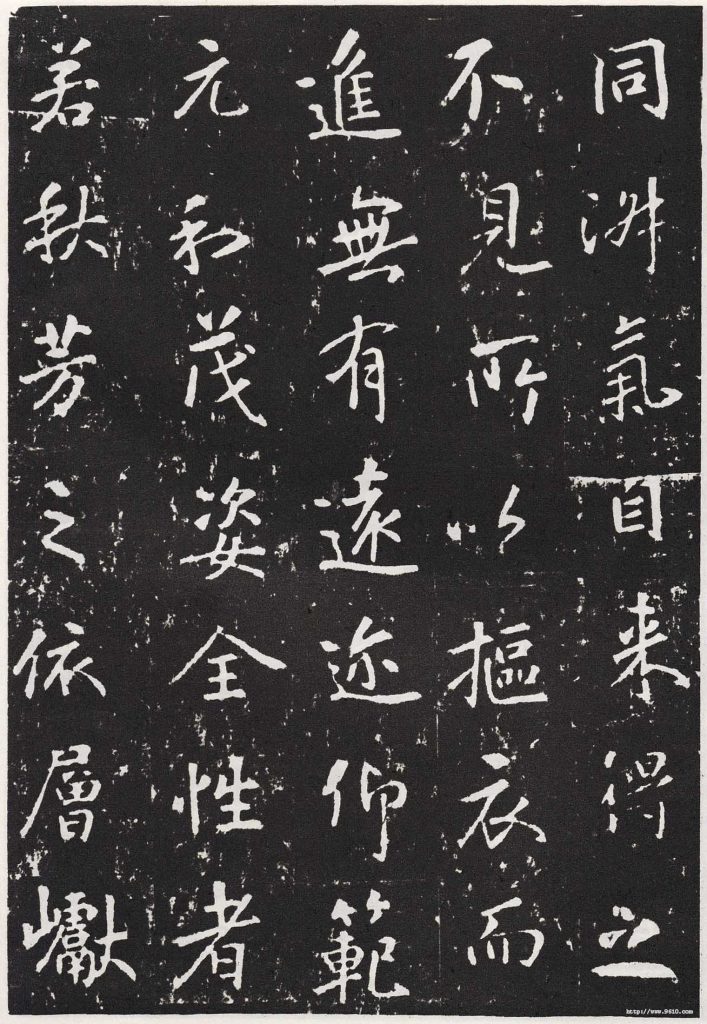 同氣自来得之
不見所以摳衣而
進無有遠迩仰範
元和茂姿全性者
若秋芳之依層巘
http://www.9610.com